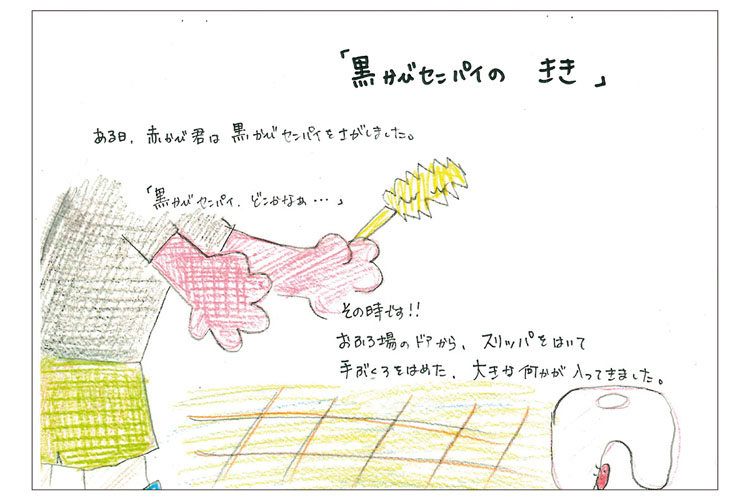 「黒かびセンパイの きき」
ある日、赤かび君は黒かびセンパイをさがしました。
「黒かびセンパイ、どこかなぁ…」
その時です!!
おふろ場のドアから、スリッパをはいて
手ぶくろをはめた、大きな何かが入ってきました。